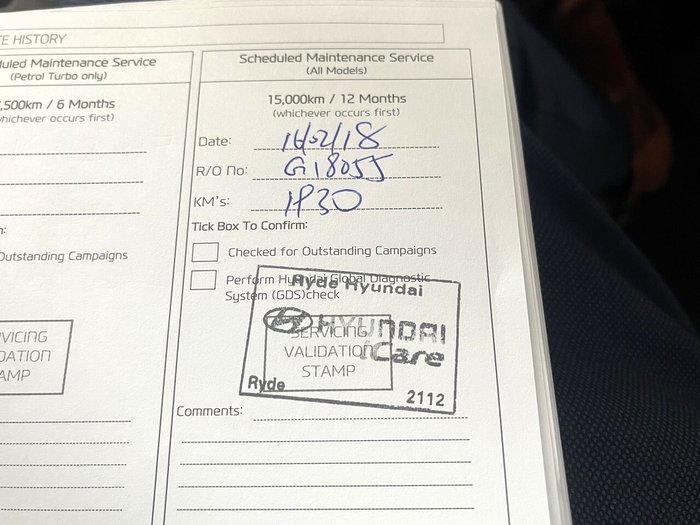 E HISTORY
uled Maintenance Service
(Petrol Turbo only)
,500km / 6 Months
whichever occurs first)
n:
Outstanding Campaigns
VICING
DATION
AMP
Scheduled Maintenance Service
(All Models)
15,000km / 12 Months
(whichever occurs first)
Date: 16/02/18
R/O No: G18055
KM's:
Tick Box To Confirm:
Checked for Outstanding Campaigns
Perform Hyundai Global Diagnostic
System (GDS)check
Ryde Hyundai
HYUNDAI
iCare
SERVICING
VALIDATION
STAMP
Ryde
2112
Comments: